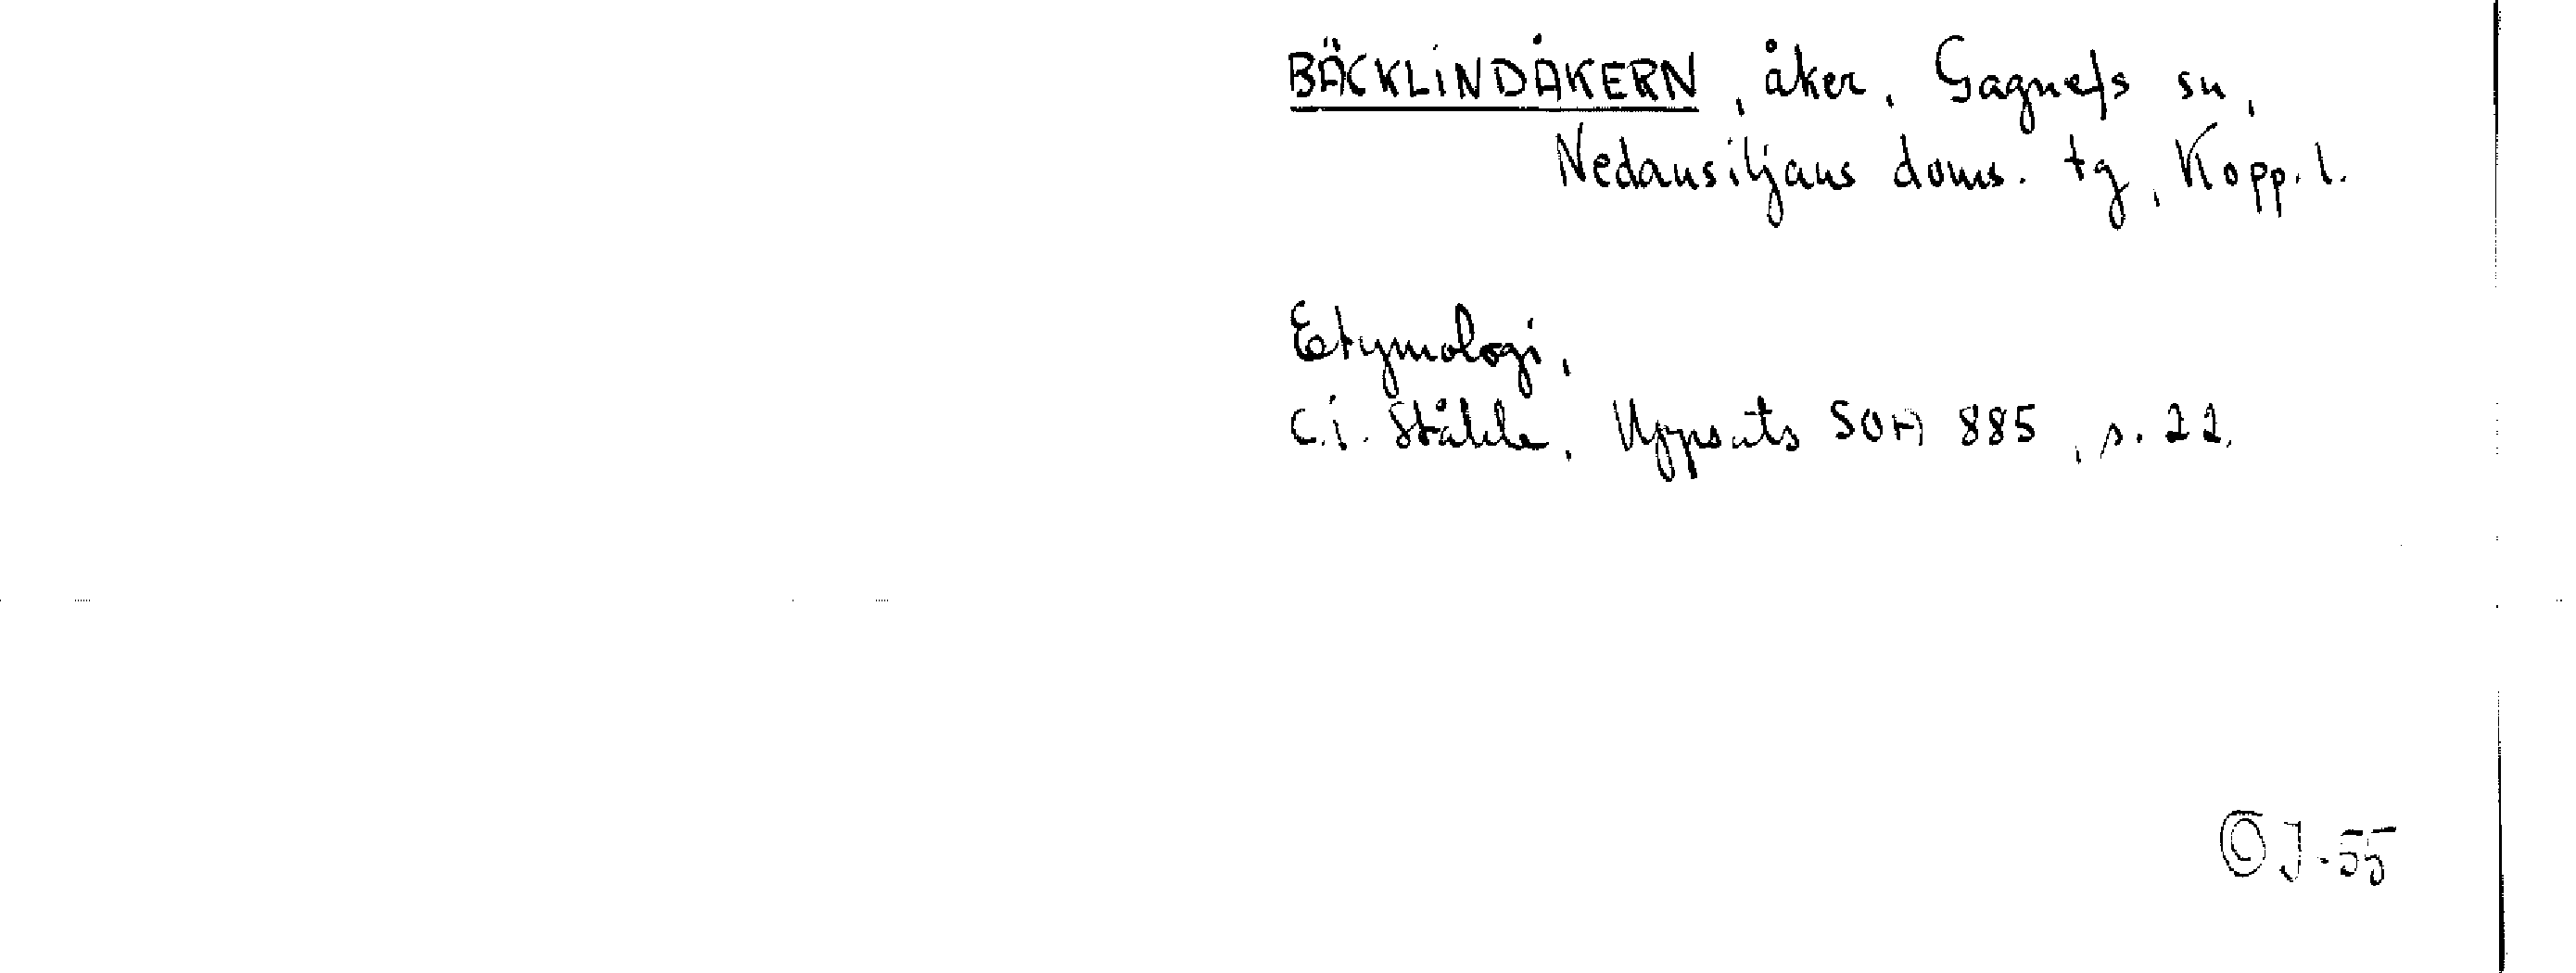 BÄCKLINDÅKERN, åker, Gagnefs sn,
Nedansiljans doms. tg, Kopp. l.
Etymologi,
C.I. Ståhle, Uppsats SOA 885, s. 22.
J-55